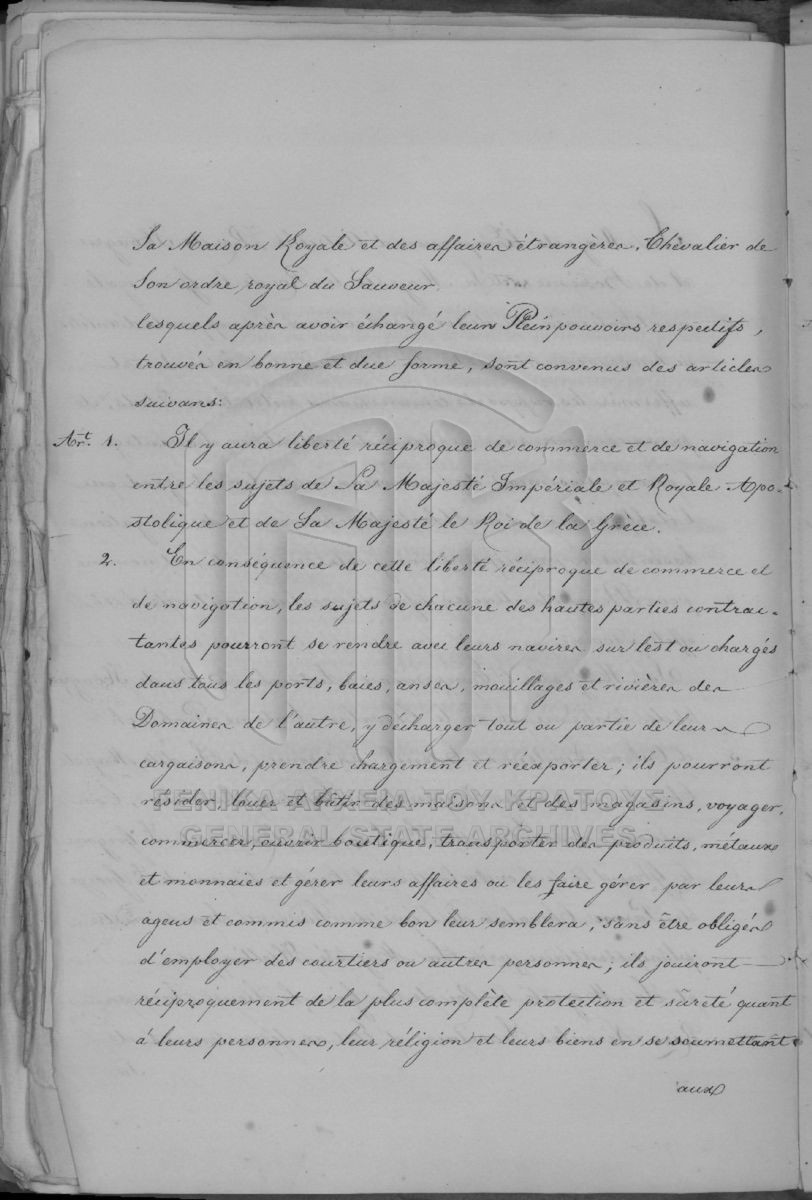 Sa Maison Royale et des affaires étrangères, Chevalier de
Son ordre royal du Sauveur.
lesquels après avoir échangé leurs Pleinpouvoirs respectifs,
trouvés en bonne et due forme, sont convenus des articles
suivans:
Art. 1. Il y aura liberté réciproque de commerce et de navigation
entre les sujets de Sa Majesté Impériale et Royale Apo-
stolique et de Sa Majesté le Roi de la Grèce.
2. En conséquence de cette liberté réciproque de commerce et
de navigation, les sujets de chacune des hautes parties contrac-
tantes pourront se rendre avec leurs navires sur lest ou chargés
dans tous les ports, baies, anses, mouillages et rivières des
Domaines de l'autre, y décharger tout ou partie de leurs
cargaisons, prendre chargement et réexporter; ils pourront
résider, louer et bâtir des maisons et des magasins, voyager,
commercer, ouvrir boutique, transporter des produits, métaux
et monnaies et gérer leurs affaires ou les faire gérer par leurs
agens et commis comme bon leur semblera, sans être obligés
d'employer des courtiers ou autres personnes; ils jouiront
réciproquement de la plus complète protection et sûreté quant
à leurs personnes, leur réligion et leurs biens en se soumettant
aux
ΓΕΝΙΚΑ ΑΡΧΕΙΑ ΤΟΥ ΚΡΑΤΟΥΣ
GENERAL STATE ARCHIVES